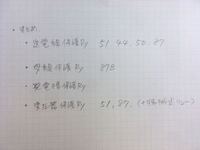 ・まとめ
・送電線保護Ry 51, 44, 50, 87
・母線保護Ry 87B
・発電機保護Ry
・変圧器保護Ry 51, 87,